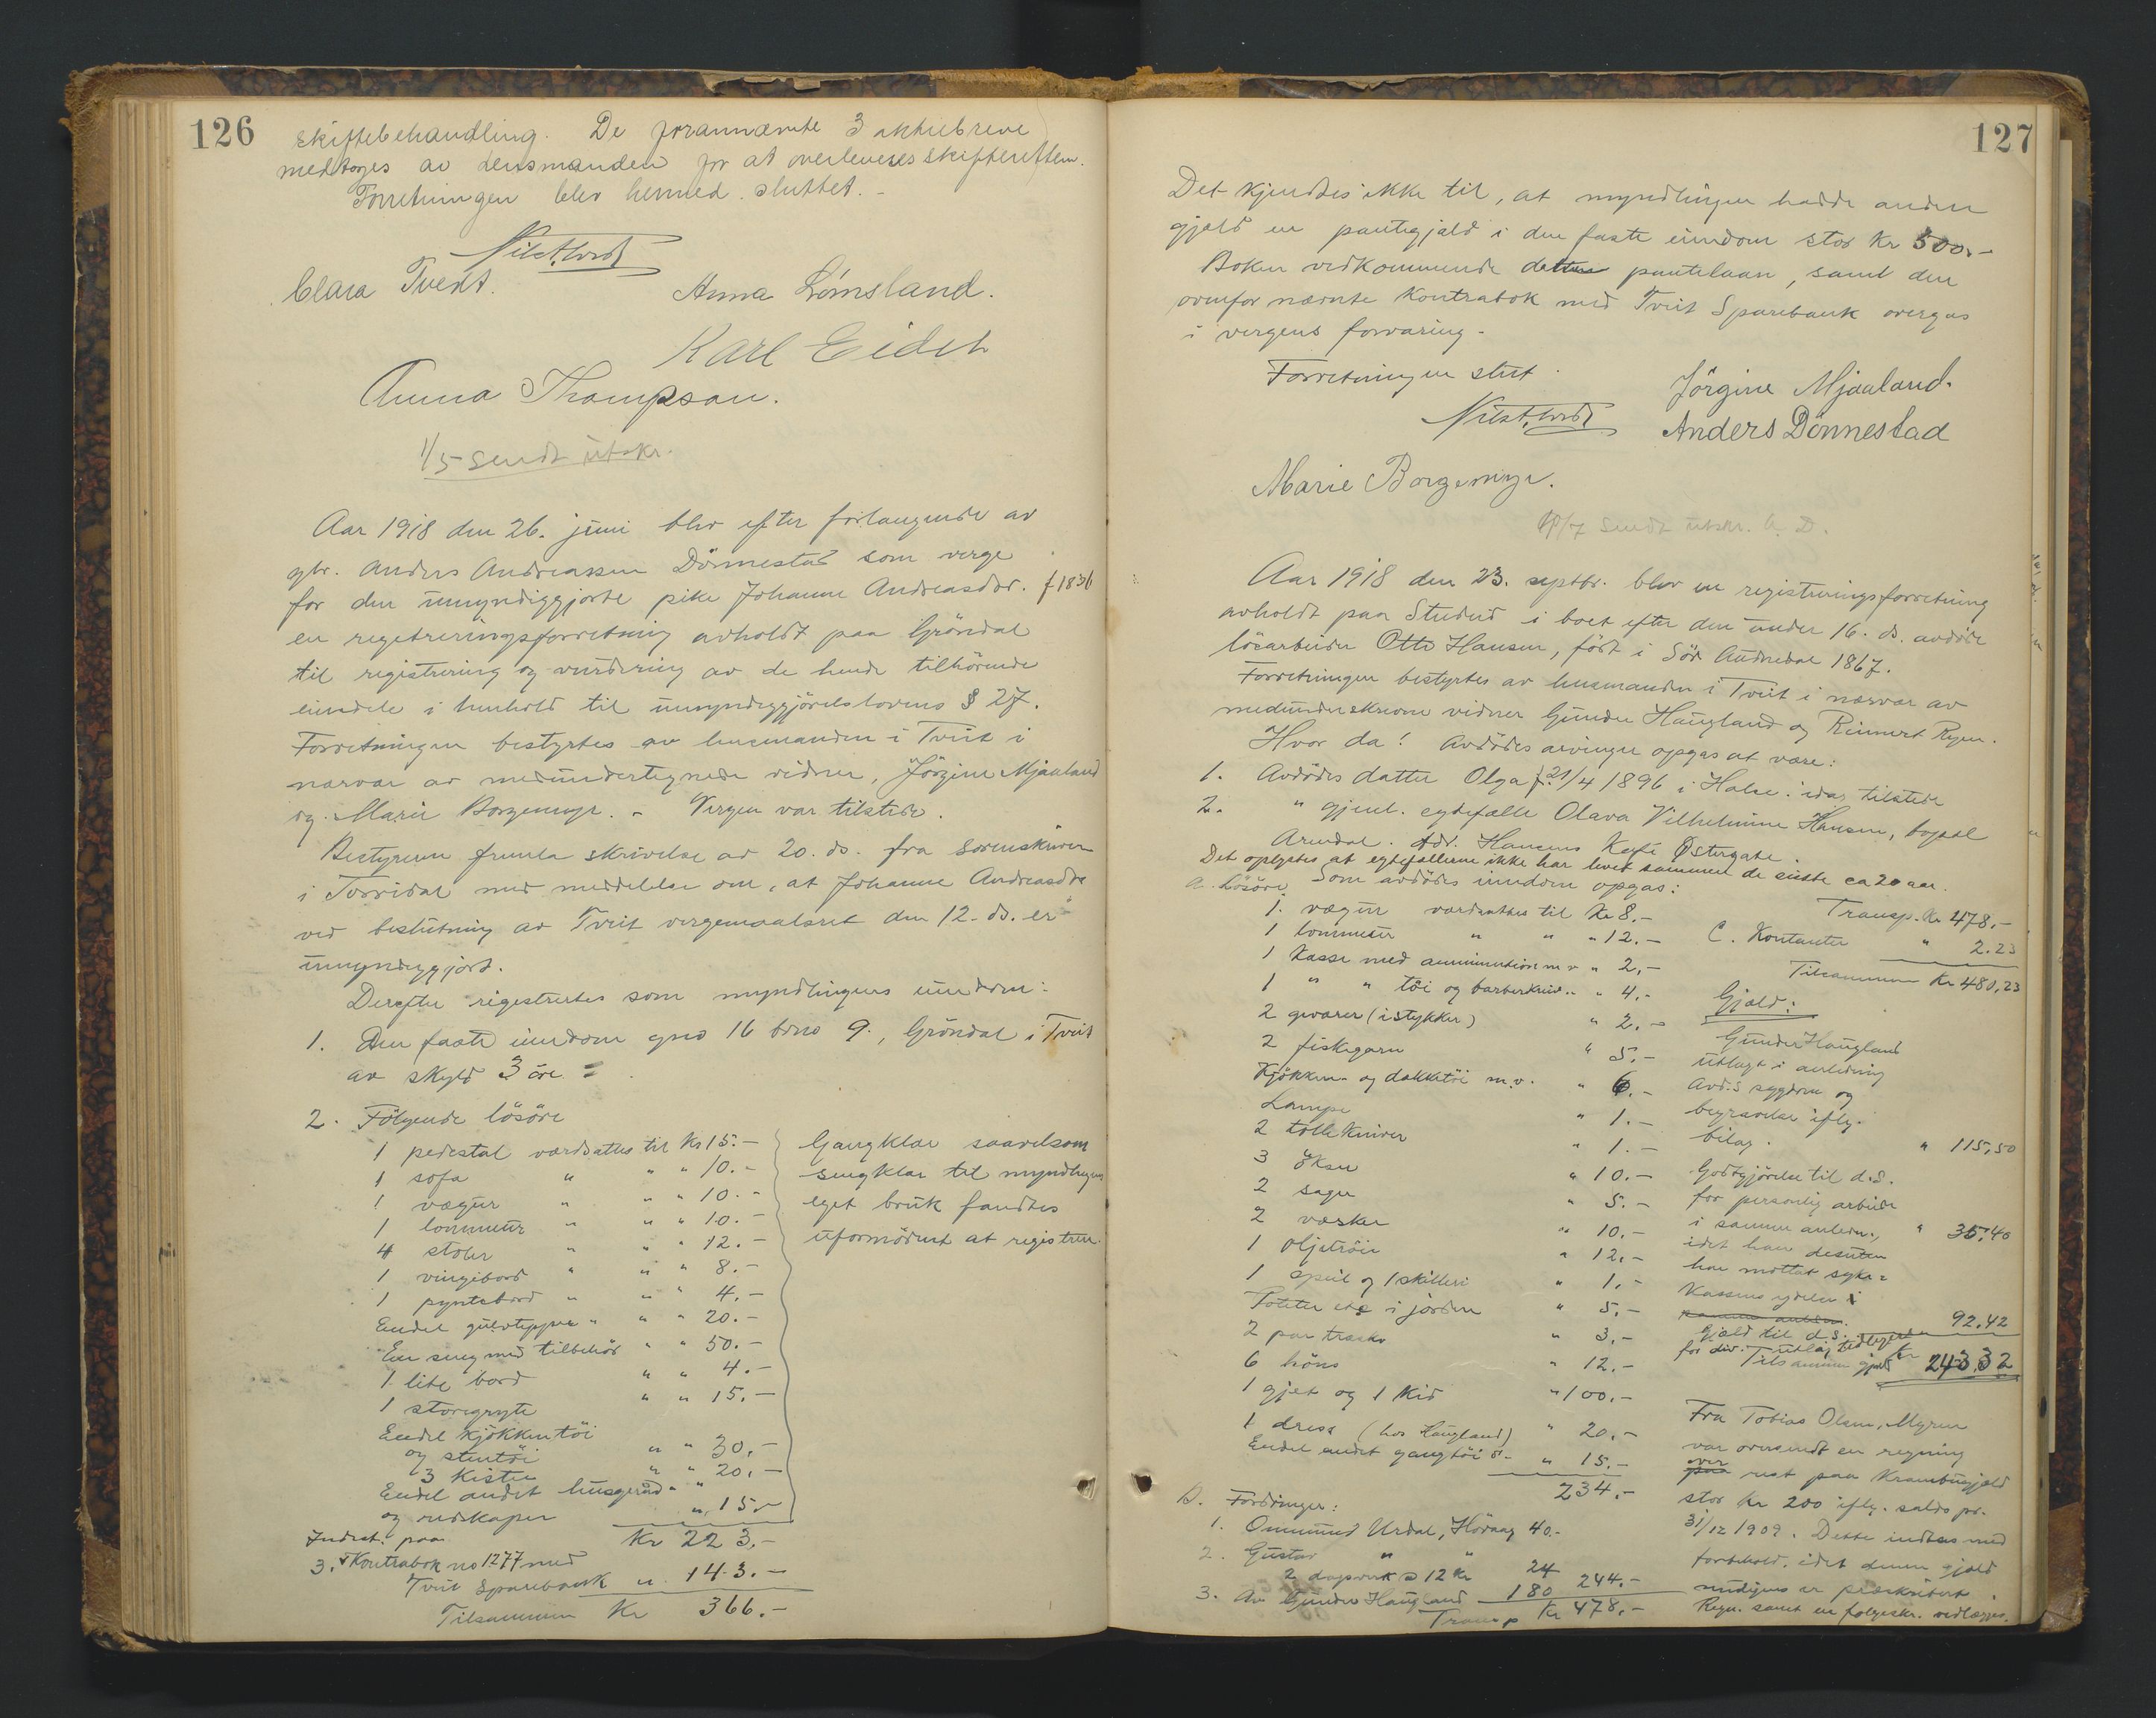 126
skiftebehandling. De forannævnte 3 aktiebreve
medtoges av lensmanden for at overleveres skifteretten.
Forretningen blev hermed sluttet. -
Clara Tveit.
Anna Lömsland.
Karl Eidet
Anna Thompson.
1/5 sendt utskr.
Aar 1918 den 26. juni blev efter forlangende av
gbr. Anders Andreassen Dönnestad som verge
for den umyndiggjorte pike Johanne Andreasdtr. f 1836
en registreringsforretning avholdt paa Gröndal
til registrering og vurdering av de hende tilhörende
eiendele i henhold til umyndiggjörelseslovens § 27.
Forretningen bestyrtes av lensmanden i Tveit i
nærvær av medundertegnede vidner, Jörgine Mjaaland
og Marie Borgemyr. - Vergen var tilstede.
Bestyreren fremla skrivelse av 20. ds. fra sorenskriveren
i Torridal med meddelelse om, at Johanne Andreasdtr
ved beslutning av Tveit vergemaalsret den 12. ds. er
umyndiggjort.
Derefter registrertes som myndlingens eiendom:
1. Den faste eiendom gno 16 bno 9., Gröndal i Tveit
av skyld 3 öre
2. Fölgende lösöre
1 pedestal værdsattes til Kr 15.-
1 sofa " " " 10.-
1 vægur " " " 10.-
1 lommeur " " " 10.-
4 stoler " " " 12.-
1 vingebord " " " 8.-
1 pyntebord " " " 4.-
Endel gulvtepper " " " 20.-
En seng med tilbehör " " 50.-
1 lite bord " " 4.-
1 storegryte " " 15.-
Endel kjökkentöi
og stentöi " " 30.-
3 kister " " 20.-
Endel andet husgeraad " "
og redskaper " 15.-
Kr 223.-
Gangklær saavelsom
sengklær til myndlingens
eget bruk fandtes
ufornödent at registrere.
Indest. paa
3. Kontrabok no 1277 med
Tveit Sparebank " 143.-
Tilsammen Kr 366.-
127
Det kjendtes ikke til, at myndlingen hadde anden
gjæld en pantegjæld i den faste eiendom stor Kr 500.-
Boken vedkommende dette pantelaan, samt den
ovenfor nævnte Kontrabok med Tveit Sparebank overgas
i vergens forvaring.
Forretningen slut.
Jörgine Mjaaland.
Anders Dönnestad
Marie Borgemyr.
/7 sendt utskr. A. D.
Aar 1918 den 23. septbr. blev en registreringsforretning
avholdt paa Studed i boet efter den under 16. ds. avdöde
lösarbeider Otto Hansen, född i Sör Audnedal 1867.
Forretningen bestyrtes av lensmanden i Tveit i nærvær av
medunderskrevne vidner Gunder Haugland og Reinert Ryen.
Hvor da! Avdödes arvinger opgas at være:
1. Avdödes datter Olga f. 21/4 1896 i Halse. idag tilstede
2. " gjenl. egtefælle Olava Vilhelmine Hansen, bopæl
Arendal. Adr. Hansens Kafé Østergate.
Det oplystes at egtefællerne ikke har levet sammen de sidste ca 20 aar.
Som avdödes eiendom opgas:
A. Lösöre
1. vægur værdsattes til Kr 8.-
1 lommeur " " " 12.-
1 Kasse med ammunition m v " 2.-
1 " " töi og barberkniv " 4.-
2 geværer (istykker) " 2.-
2 fiskegarn " 5.-
Kjökken- og dækketöi m.v. " 6.-
Lampe " 1.-
2 tolleKniver " 1.-
3 öxer " 10.-
2 sager " 5.-
2 væsker " 10.-
1 oljetröie " 12.-
1 speil og 1 skilleri " 1.-
Poteter etc i jorden " 5.-
2 par træsko " 3.-
6 höns " 12.-
1 gjet og 1 kid " 100.-
1 dress (hos Haugland) " 20.-
Endel andet gangtöi " 15.-
234.-
B. Fordringer:
1. Ommund Urdal, Hövaag 40.-
2. Gustav " "
2 dagsverk a 12 kr 24
3. Av Gunder Haugland 180 244.-
Transp Kr 478.-
Transp. Kr 478.-
C. Kontanter " 2.23
Tilsammen Kr 480,23
Gjæld:
Gunder Haugland
utlæg i anledning
avd.s sygdom og
begravelse iflg.
bilag. " 115,50
Godtgjörelse til d.s.
for personlig arbeide
i samme anledn., " 35,40
idet han desuten
har mottat syke-
kassens ydelse
Gjæld til d.s.
for div. utlæg tidligere 92,42
Tilsammen gjæld kr 243,32
Fra Tobias Olsen, Myren
var oversendt en regning
over rest paa Krambugjæld
stor kr 200 iflg. saldo pr.
31/12 1909. Dette indtas med
forbehold, idet denne gjæld
muligens er præskribert.
Regn. samt en følgeskr. vedlægges.